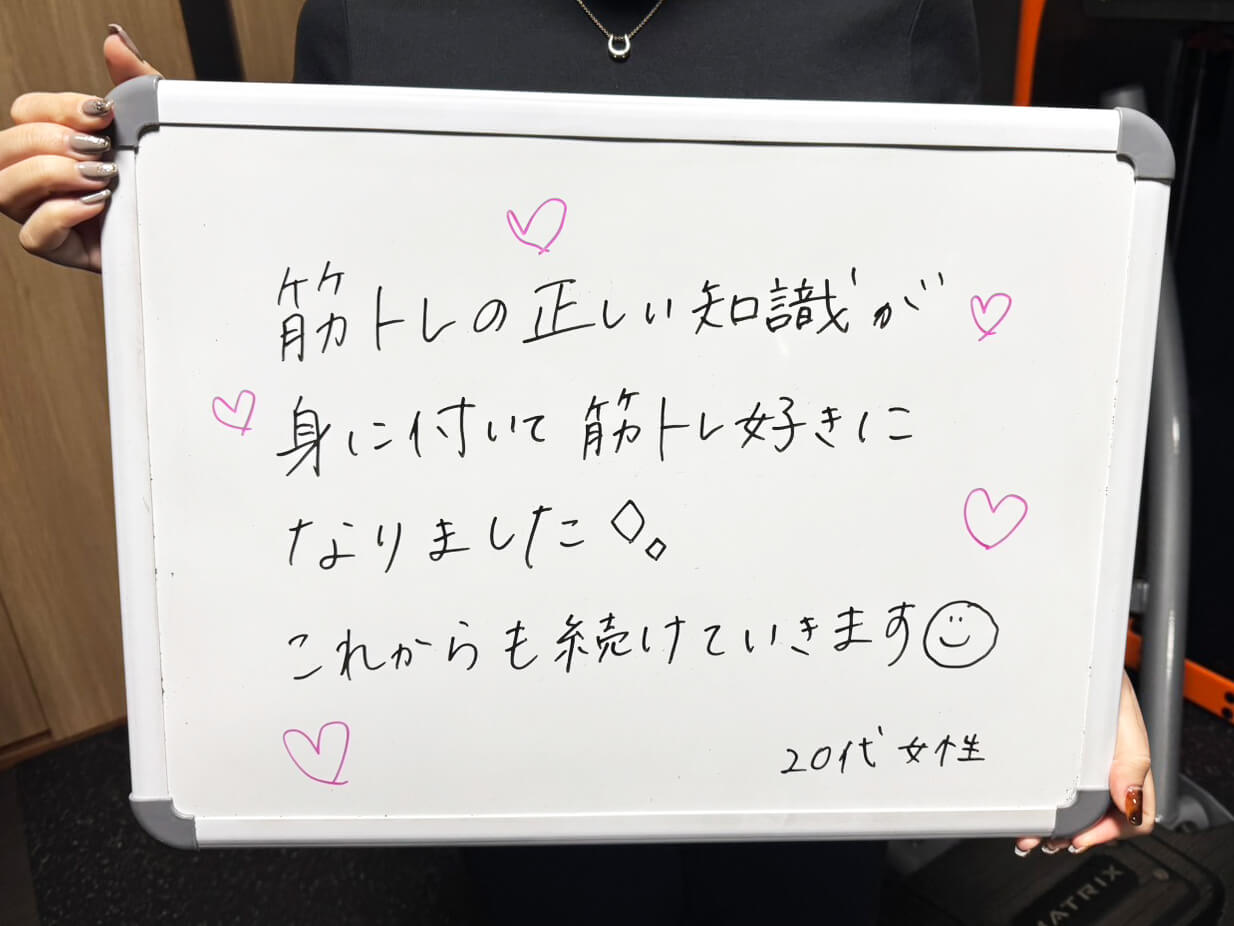 筋トレの正しい知識が
身に付いて筋トレ好きに
なりました
これからも続けていきます
20代女性
MATRIX